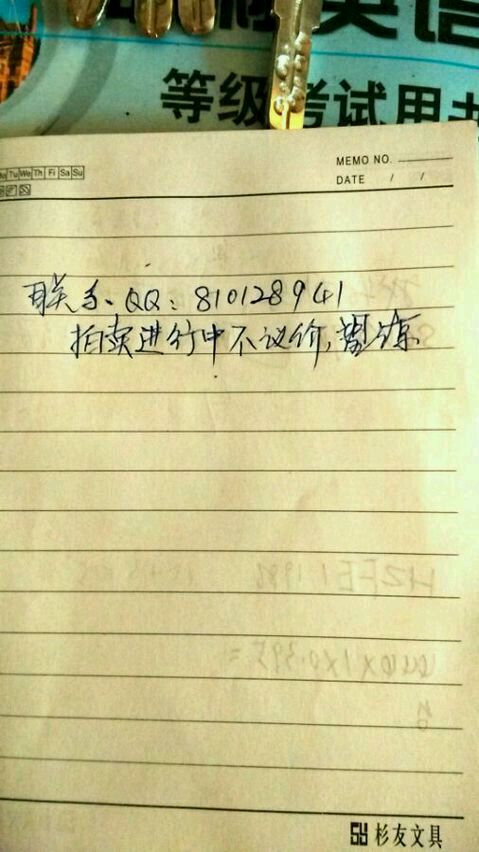 英语
等级考试用书
Mo Tu We Th Fi Sa Su
MEMO NO.
DATE / /
联系、QQ：810128941
拍卖进行中不议价，
杉友文具